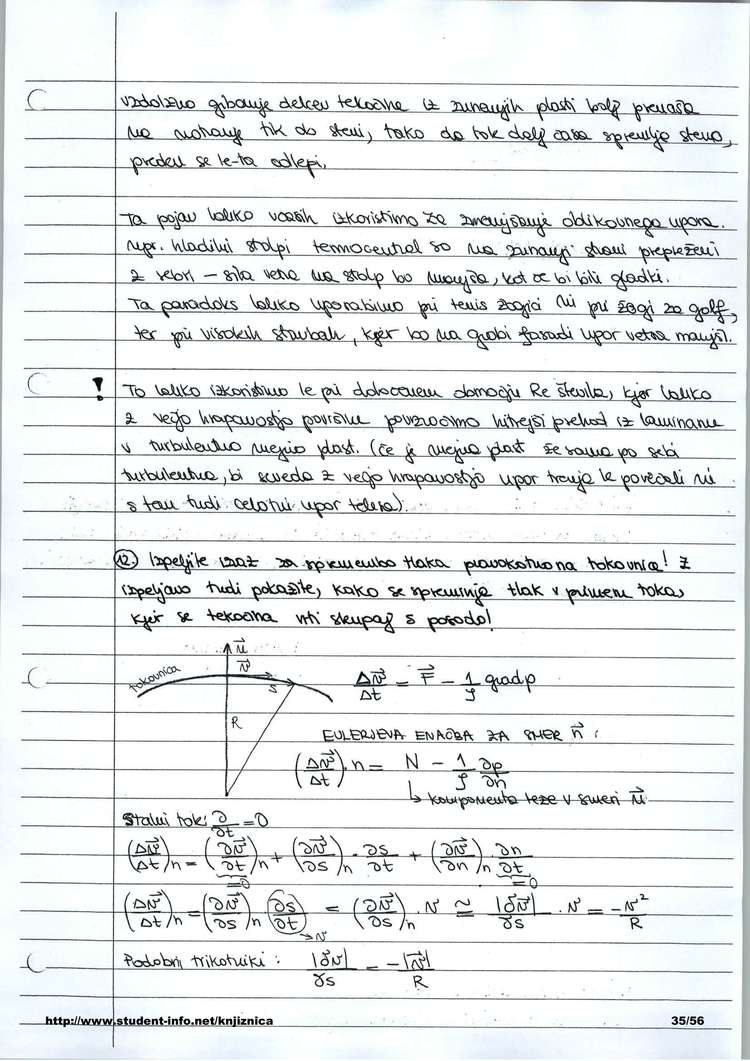 vzdolžno gibanje delcev tekočine iz zunanjih plasti bolj prenaša
na gibanje tik do steni, tako da tok dalj časa spremlja steno,
preden se le-ta odlepi.
Ta pojav lahko včasih izkoristimo za zmanjšanje oblikovnega upora.
npr. hladilni stolpi termocentral so na zunanji strani prepreženi
z rebri – sila vetra na stolp bo manjša, kot če bi bili gladki.
Ta paradoks lahko uporabimo pri tenis žogici in pri žogi za golf,
ter pri visokih stavbah, kjer bo na grobi fasadi upor vetra manjši.
! To lahko izkoristimo le pri določenem območju Re števila, kjer lahko
z večjo hrapavostjo površine povzročimo hitrejši prehod iz laminarne
v turbulentno mejno plast. (če je mejna plast že sama po sebi
turbulentna, bi seveda z večjo hrapavostjo upor trenja le povečali in
s tem tudi celotni upor telesa).
12. Izpeljite izraz za spremembo tlaka pravokotno na tokovnice! Z
izpeljavo tudi pokažite, kako se spreminja tlak v primeru toka,
kjer se tekočina vrti skupaj s posodo!
n⃗
v⃗
tokovnica
s
R
Δv⃗/Δt = F⃗ – 1/ρ grad p
EULERJEVA ENAČBA ZA SMER n⃗ :
(Δv⃗/Δt)·n = N – 1/ρ ∂p/∂n
↳ komponenta teže v smeri n⃗
Stalni tok: ∂/∂t = 0
(Δv⃗/Δt)n = (∂v⃗/∂t)n + (∂v⃗/∂s)n · ∂s/∂t + (∂v⃗/∂n)n · ∂n/∂t
=0 =0
(Δv⃗/Δt)n = (∂v⃗/∂s)n (∂s/∂t) = (∂v⃗/∂s)n · v ≅ |δv⃗|/δs · v = –v²/R
→v
Podobni trikotniki : |δv⃗|/δs = –|v⃗|/R
http://www.student-info.net/knjiznica
35/56